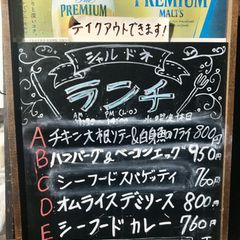 PREMIUM
PREMIUM
MALT'S
テイクアウトできます!
シャルドネ
ランチ
A チキン大根ソテー&白身魚のフライ 800円
B ハンバーグ&ベーコンエッグ 950円
C シーフードスパゲッティ 760円
D オムライスデミソース 800円
E シーフードカレー 760円